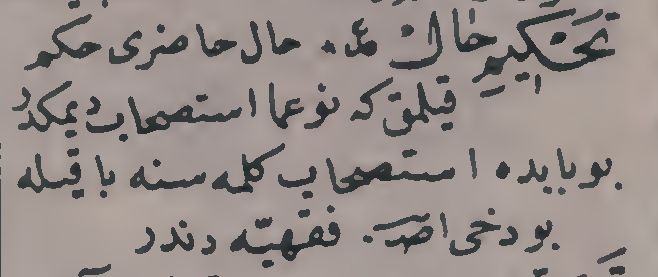 تَحْكِيمِ حَال حال حاضری حكم
قیلمق كه نوعما استصحاب دیمكدر
بو بابده استصحاب كلمه سنه باقیله
بو دخی اصـ. فقهیّه دندر